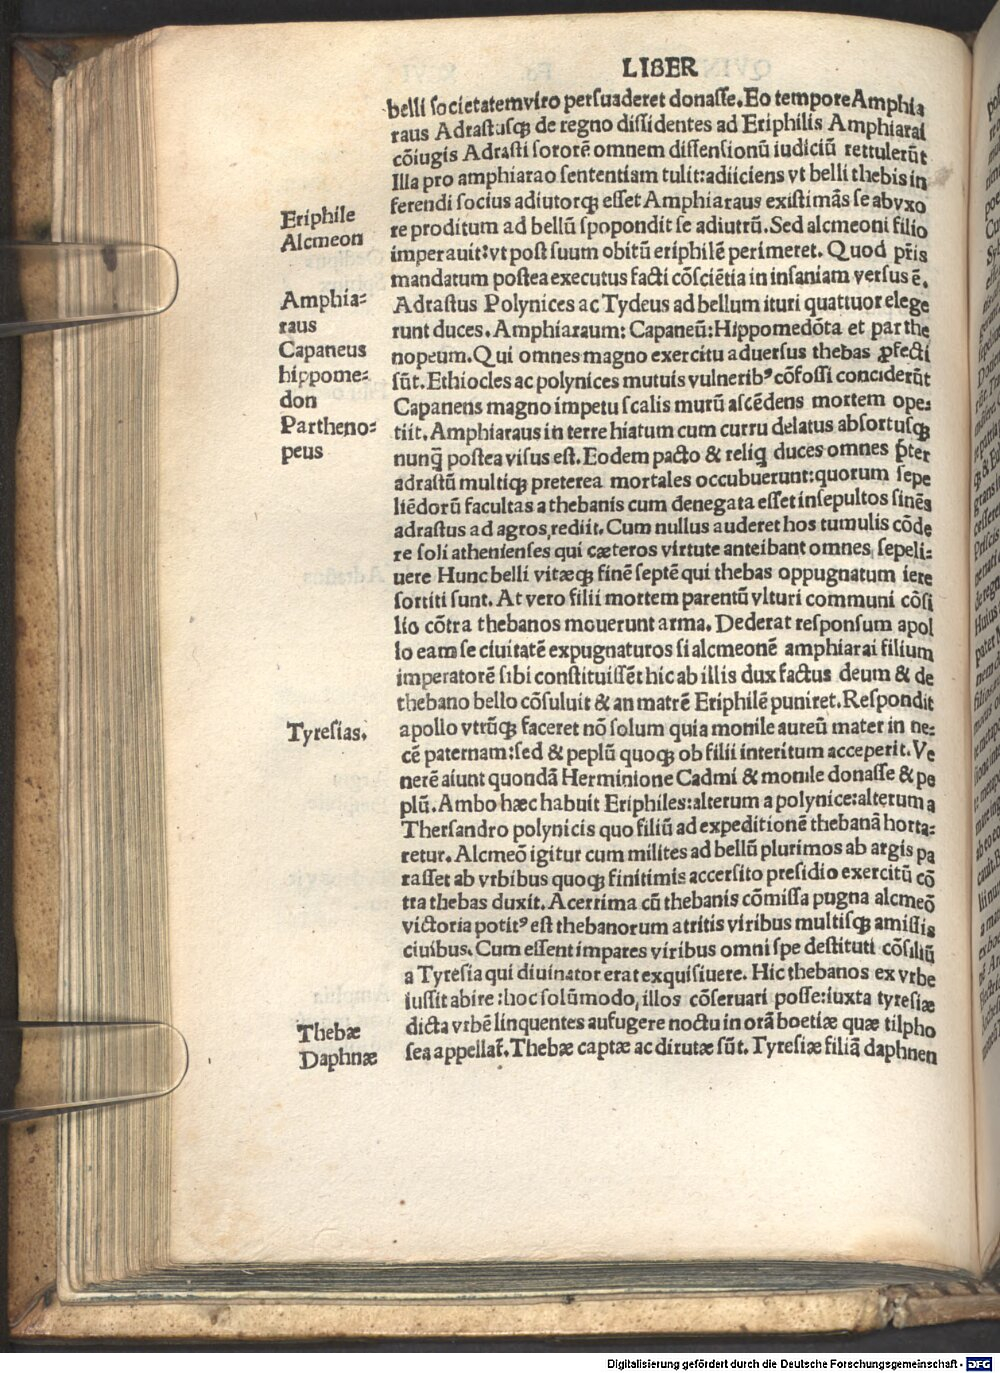 LIBER
belli societatem viro persuaderet donasse. Eo tempore Amphia
raus Adrastusqꝫ de regno dissidentes ad Eriphilis Amphiarai
cõiugis Adrasti sororẽ omnem dissensionũ iudiciũ rettulerũt
Illa pro amphiarao sententiam tulit: adiiciens vt belli thebis in
ferendi socius adiutorqꝫ esset Amphiaraus existimãs se ab vxo
re proditum ad bellũ spopondit se adiutrũ. Sed alcmeoni filio
imperauit: vt post suum obitũ eriphilẽ perimeret. Quod pr̃is
mandatum postea executus facti cõsciẽtia in insaniam versus ẽ.
Adrastus Polynices ac Tydeus ad bellum ituri quattuor elege
runt duces. Amphiaraum: Capaneũ: Hippomedõta et parthe
nopeum. Qui omnes magno exercitu aduersus thebas ꝓfecti
sũt. Ethiocles ac polynices mutuis vulneribꝰ cõfossi conciderũt
Capanens magno impetu scalis murũ ascẽdens mortem ope⸗
tiit. Amphiaraus in terre hiatum cum curru delatus absortusqꝫ
nunq̃ postea visus est. Eodem pacto & reliq duces omnes p̃ter
adrastũ multiqꝫ preterea mortales occubuerunt: quorum sepe
liẽdorũ facultas a thebanis cum denegata esset insepultos sinẽs
adrastus ad agros, rediit. Cum nullus auderet hos tumulis cõde
re soli athenienses qui cæteros virtute anteibant omnes sepeli⸗
uere Hunc belli vitæqꝫ finẽ septẽ qui thebas oppugnatum iere
sortiti sunt. At vero filii mortem parentũ vlturi communi cõsi
lio cõtra thebanos mouerunt arma. Dederat responsum apol
lo eam se ciuitatẽ expugnaturos si alcmeonẽ amphiarai filium
imperatorẽ sibi constituissẽt hic ab illis dux factus deum & de
thebano bello cõsuluit & an matrẽ Eriphilẽ puniret. Respondit
apollo vtrũqꝫ faceret nõ solum quia monile aureũ mater in ne⸗
cẽ paternam: sed & peplũ quoqꝫ ob filii interitum acceperit. Ve
nerẽ aiunt quondã Herminione Cadmi & monile donasse & pe
plũ. Ambo hæc habuit Eriphiles: alterum a polynice: alterum a
Thersandro polynicis quo filiũ ad expeditionẽ thebanã horta⸗
retur. Alcmeõ igitur cum milites ad bellũ plurimos ab argis pa
rasset ab vrbibus quoqꝫ finitimis accersito presidio exercitũ cõ
tra thebas duxit. Acerrima cũ thebanis cõmissa pugna alcmeõ
victoria potitꝰ est thebanorum atritis viribus multisqꝫ amissis
ciuibus. Cum essent impares viribus omni spe destituti cõsiliũ
a Tyresia qui diuinator erat exquisiuere. Hic thebanos ex vrbe
iussit abire: hoc solũmodo, illos cõseruari posse: iuxta tyresiæ
dicta vrbẽ linquentes aufugere noctu in orã boetiæ quæ tilpho
sea appellat̃. Thebæ captæ ac dirutæ sũt. Tyresiæ filiã daphnen
Eriphile
Alcmeon
Amphia⸗
raus
Capaneus
hippome⸗
don
Partheno⸗
peus
Tyresias.
Thebæ
Daphnæ
Digitalisierung gefördert durch die Deutsche Forschungsgemeinschaft - DFG